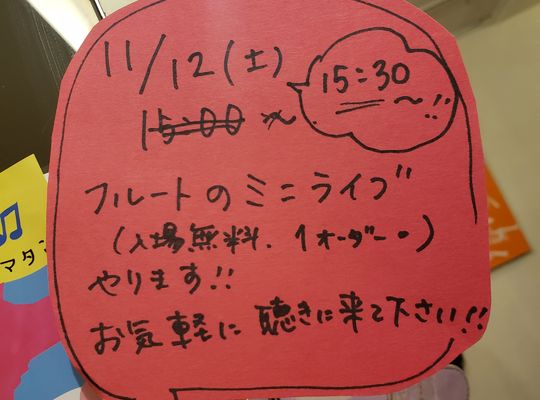 11/12(土)
15:00 〜
15:30
〜!!
フルートのミニライブ
(入場無料、1オーダー。)
やります!!
お気軽に聴きに来て下さい!!
♫
マタ